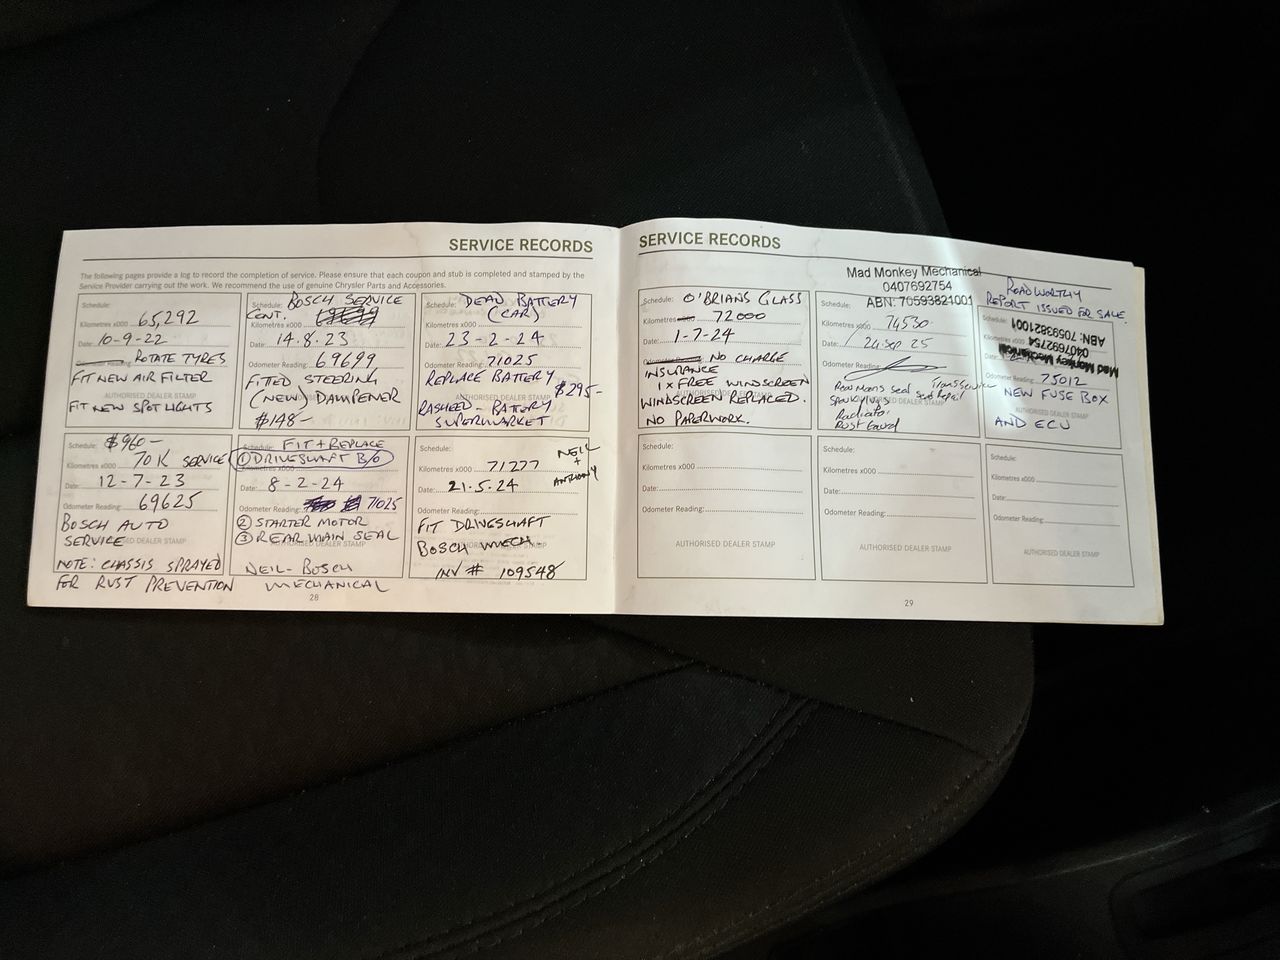 SERVICE RECORDS
The following pages provide a log to record the completion of service. Please ensure that each coupon and stub is completed and stamped by the
Service Provider carrying out the work. We recommend the use of genuine Chrysler Parts and Accessories.
Schedule:
Kilometres x000 65,292
Date: 10-9-22
ROTATE TYRES
FIT NEW AIR FILTER
AUTHORISED DEALER STAMP
FIT NEW SPOT LIGHTS
Schedule: BOSCH SERVICE
CONT.
Kilometres x000
Date: 14.8.23
Odometer Reading: 69699
FITTED STEERING
(NEW) DAMPENER
$148-
Schedule: DEAD BATTERY
(CAR)
Kilometres x000
Date: 23-2-24
Odometer Reading: 71025
REPLACE BATTERY
$295-
RASHEED - BATTERY
SUPERMARKET
Schedule: $960-
Kilometres x000 70K SERVICE
Date: 12-7-23
Odometer Reading: 69625
BOSCH AUTO
SERVICE
AUTHORISED DEALER STAMP
NOTE: CHASSIS SPRAYED
FOR RUST PREVENTION
Schedule: FIT + REPLACE
① DRIVESHAFT B/O
Date: 8-2-24
Odometer Reading: 71025
② STARTER MOTOR
③ REAR MAIN SEAL
AUTHORISED DEALER STAMP
NEIL - BOSCH
MECHANICAL
Schedule:
Kilometres x000 71277
NEIL
+
ANTHONY
Date: 21.5.24
Odometer Reading:
FIT DRIVESHAFT
BOSCH MECH-
AUTHORISED DEALER STAMP
INV # 109548
28
SERVICE RECORDS
Schedule: O'BRIANS GLASS
Kilometres 72000
Date: 1-7-24
NO CHARGE
INSURANCE
1 x FREE WINDSCREEN
WINDSCREEN REPLACED.
NO PAPERWORK.
Mad Monkey Mechanical
0407692754
ABN: 70593821001
Schedule:
Kilometres x000 74530
Date: 24 sep 25
Odometer Reading:
Rear Main Seal
Radiator
ROADWORTHY
REPORT ISSUED FOR SALE.
ABN: 70593821001
0407692754
Mad Monkey Mechanical
Odometer Reading: 75012
NEW FUSE BOX
AUTHORISED DEALER STAMP
AND ECU
Schedule:
Kilometres x000
Date:
Odometer Reading:
AUTHORISED DEALER STAMP
Schedule:
Kilometres x000
Date:
Odometer Reading:
AUTHORISED DEALER STAMP
Schedule:
Kilometres x000
Date:
Odometer Reading:
AUTHORISED DEALER STAMP
29